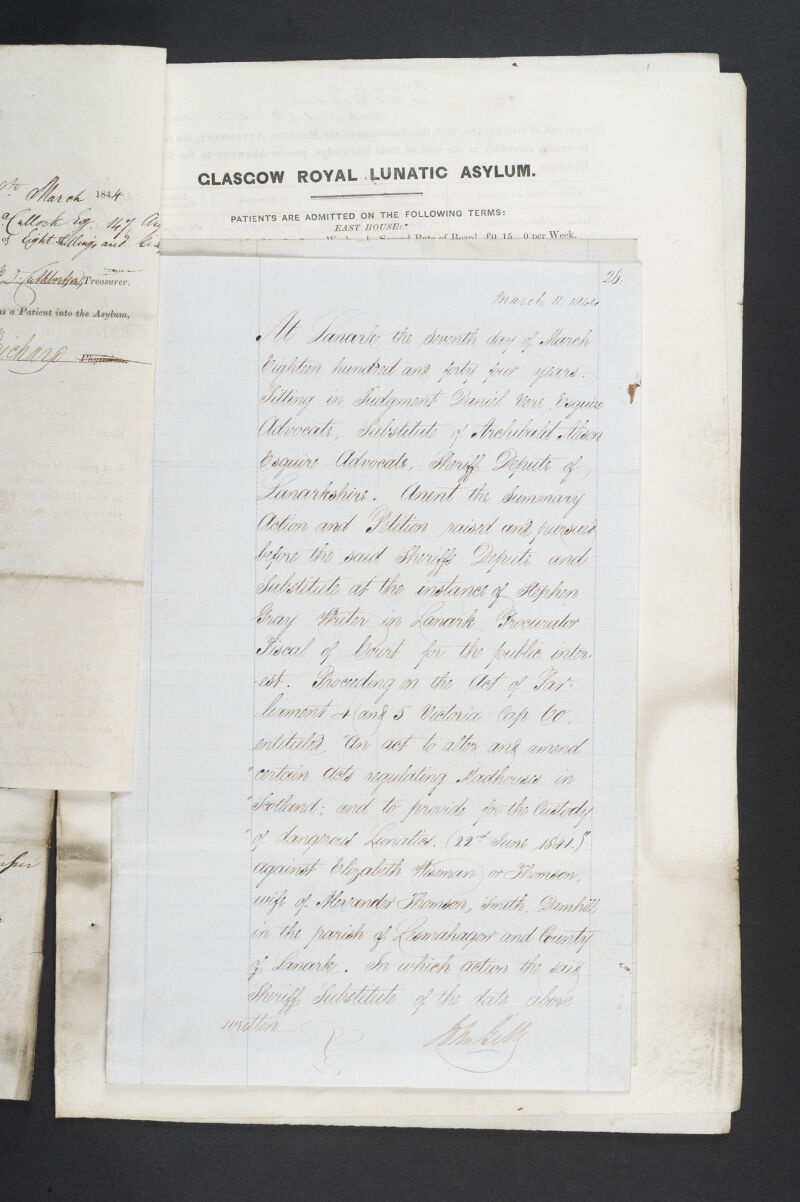 March 1844
Eight Shillings and
Treasurer.
as a Patient into the Asylum,
Physician.
GLASGOW ROYAL LUNATIC ASYLUM.
PATIENTS ARE ADMITTED ON THE FOLLOWING TERMS:
EAST HOUSE:*
Second Rate of Board £0 15 0 per Week.
26.
March 11. 1844
At Lanark, the Seventh day of March
Eighteen hundred and forty four years.
Sitting in Judgment Daniel Vere Esquire
Advocate, Substitute of Archibald Alison
Esquire Advocate, Sheriff Depute of
Lanarkshire. Anent the Summary
Action and Petition raised and pursued
before the said Sheriffs Depute and
Substitute at the instance of Stephen
Gray Writer in Lanark, Procurator
Fiscal of Court for the public inter-
-est. Proceeding on the Act of Par-
-liament 4 and 5 Victoria Cap 60.
entituled "An act to alter and amend
"certain Acts regulating Madhouses in
"Scotland; and to provide for the Custody
"of dangerous Lunatics. (22nd June 1841.)"
against Elizabeth Wiseman or Thomson,
wife of Alexander Thomson, Smith,
in the parish of Lesmahagow and County
of Lanark. In which action the said
Sheriff Substitute of the date above
written
John Kelly